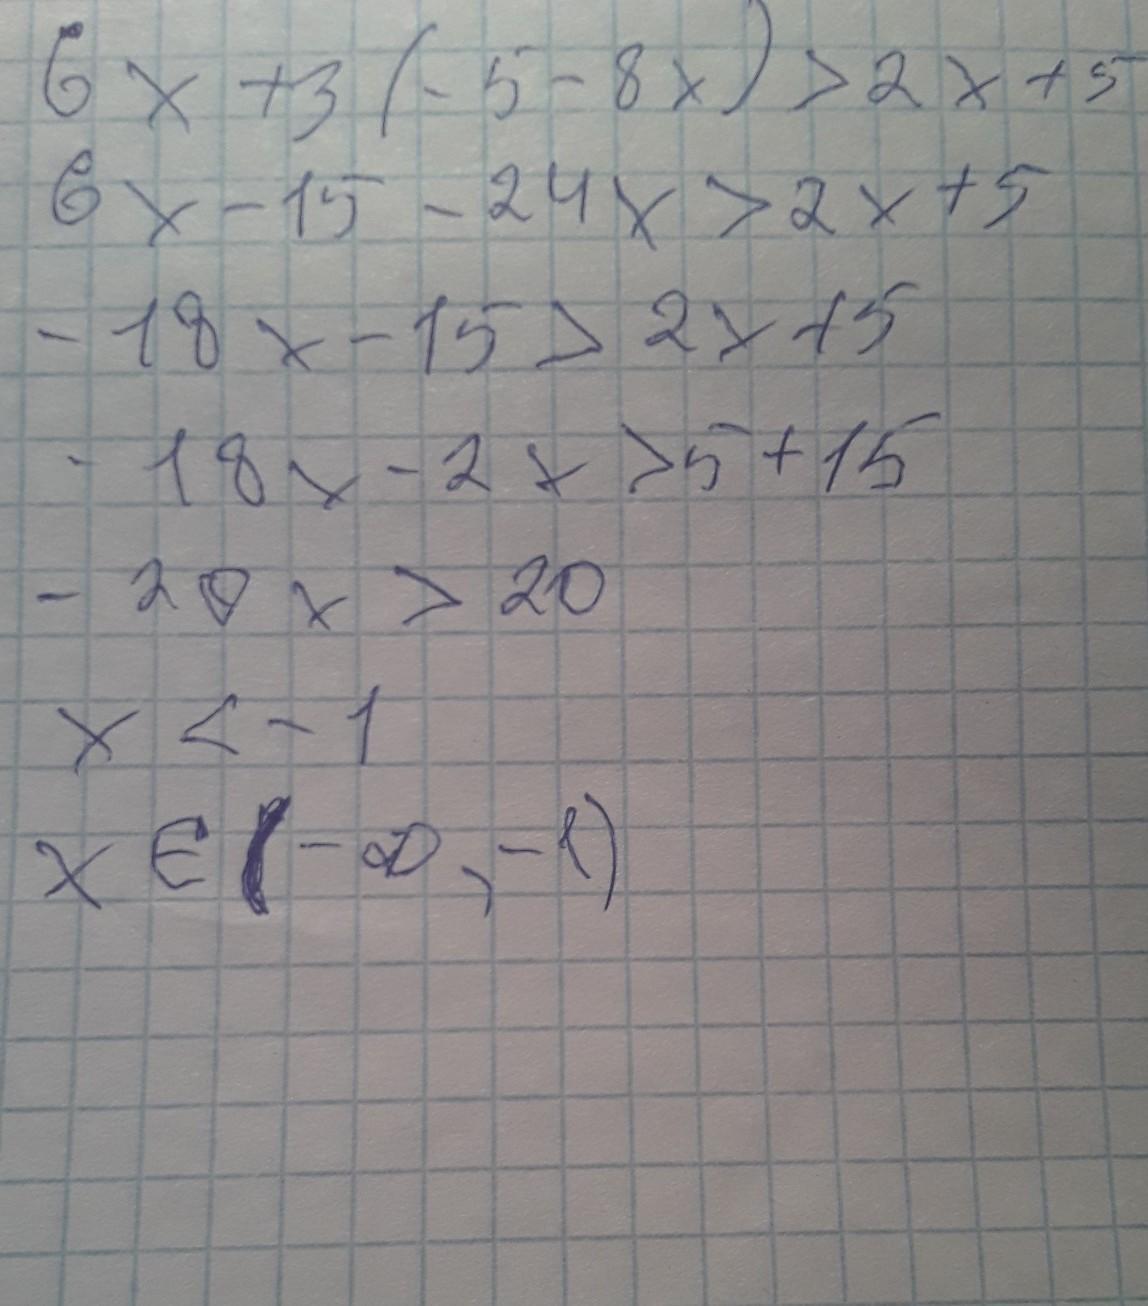 6x+3(-5-8x)>2x+5
6x-15-24x>2x+5
-18x-15>2x+5
-18x-2x>5+15
-20x>20
x<-1
x∈(-∞,-1)